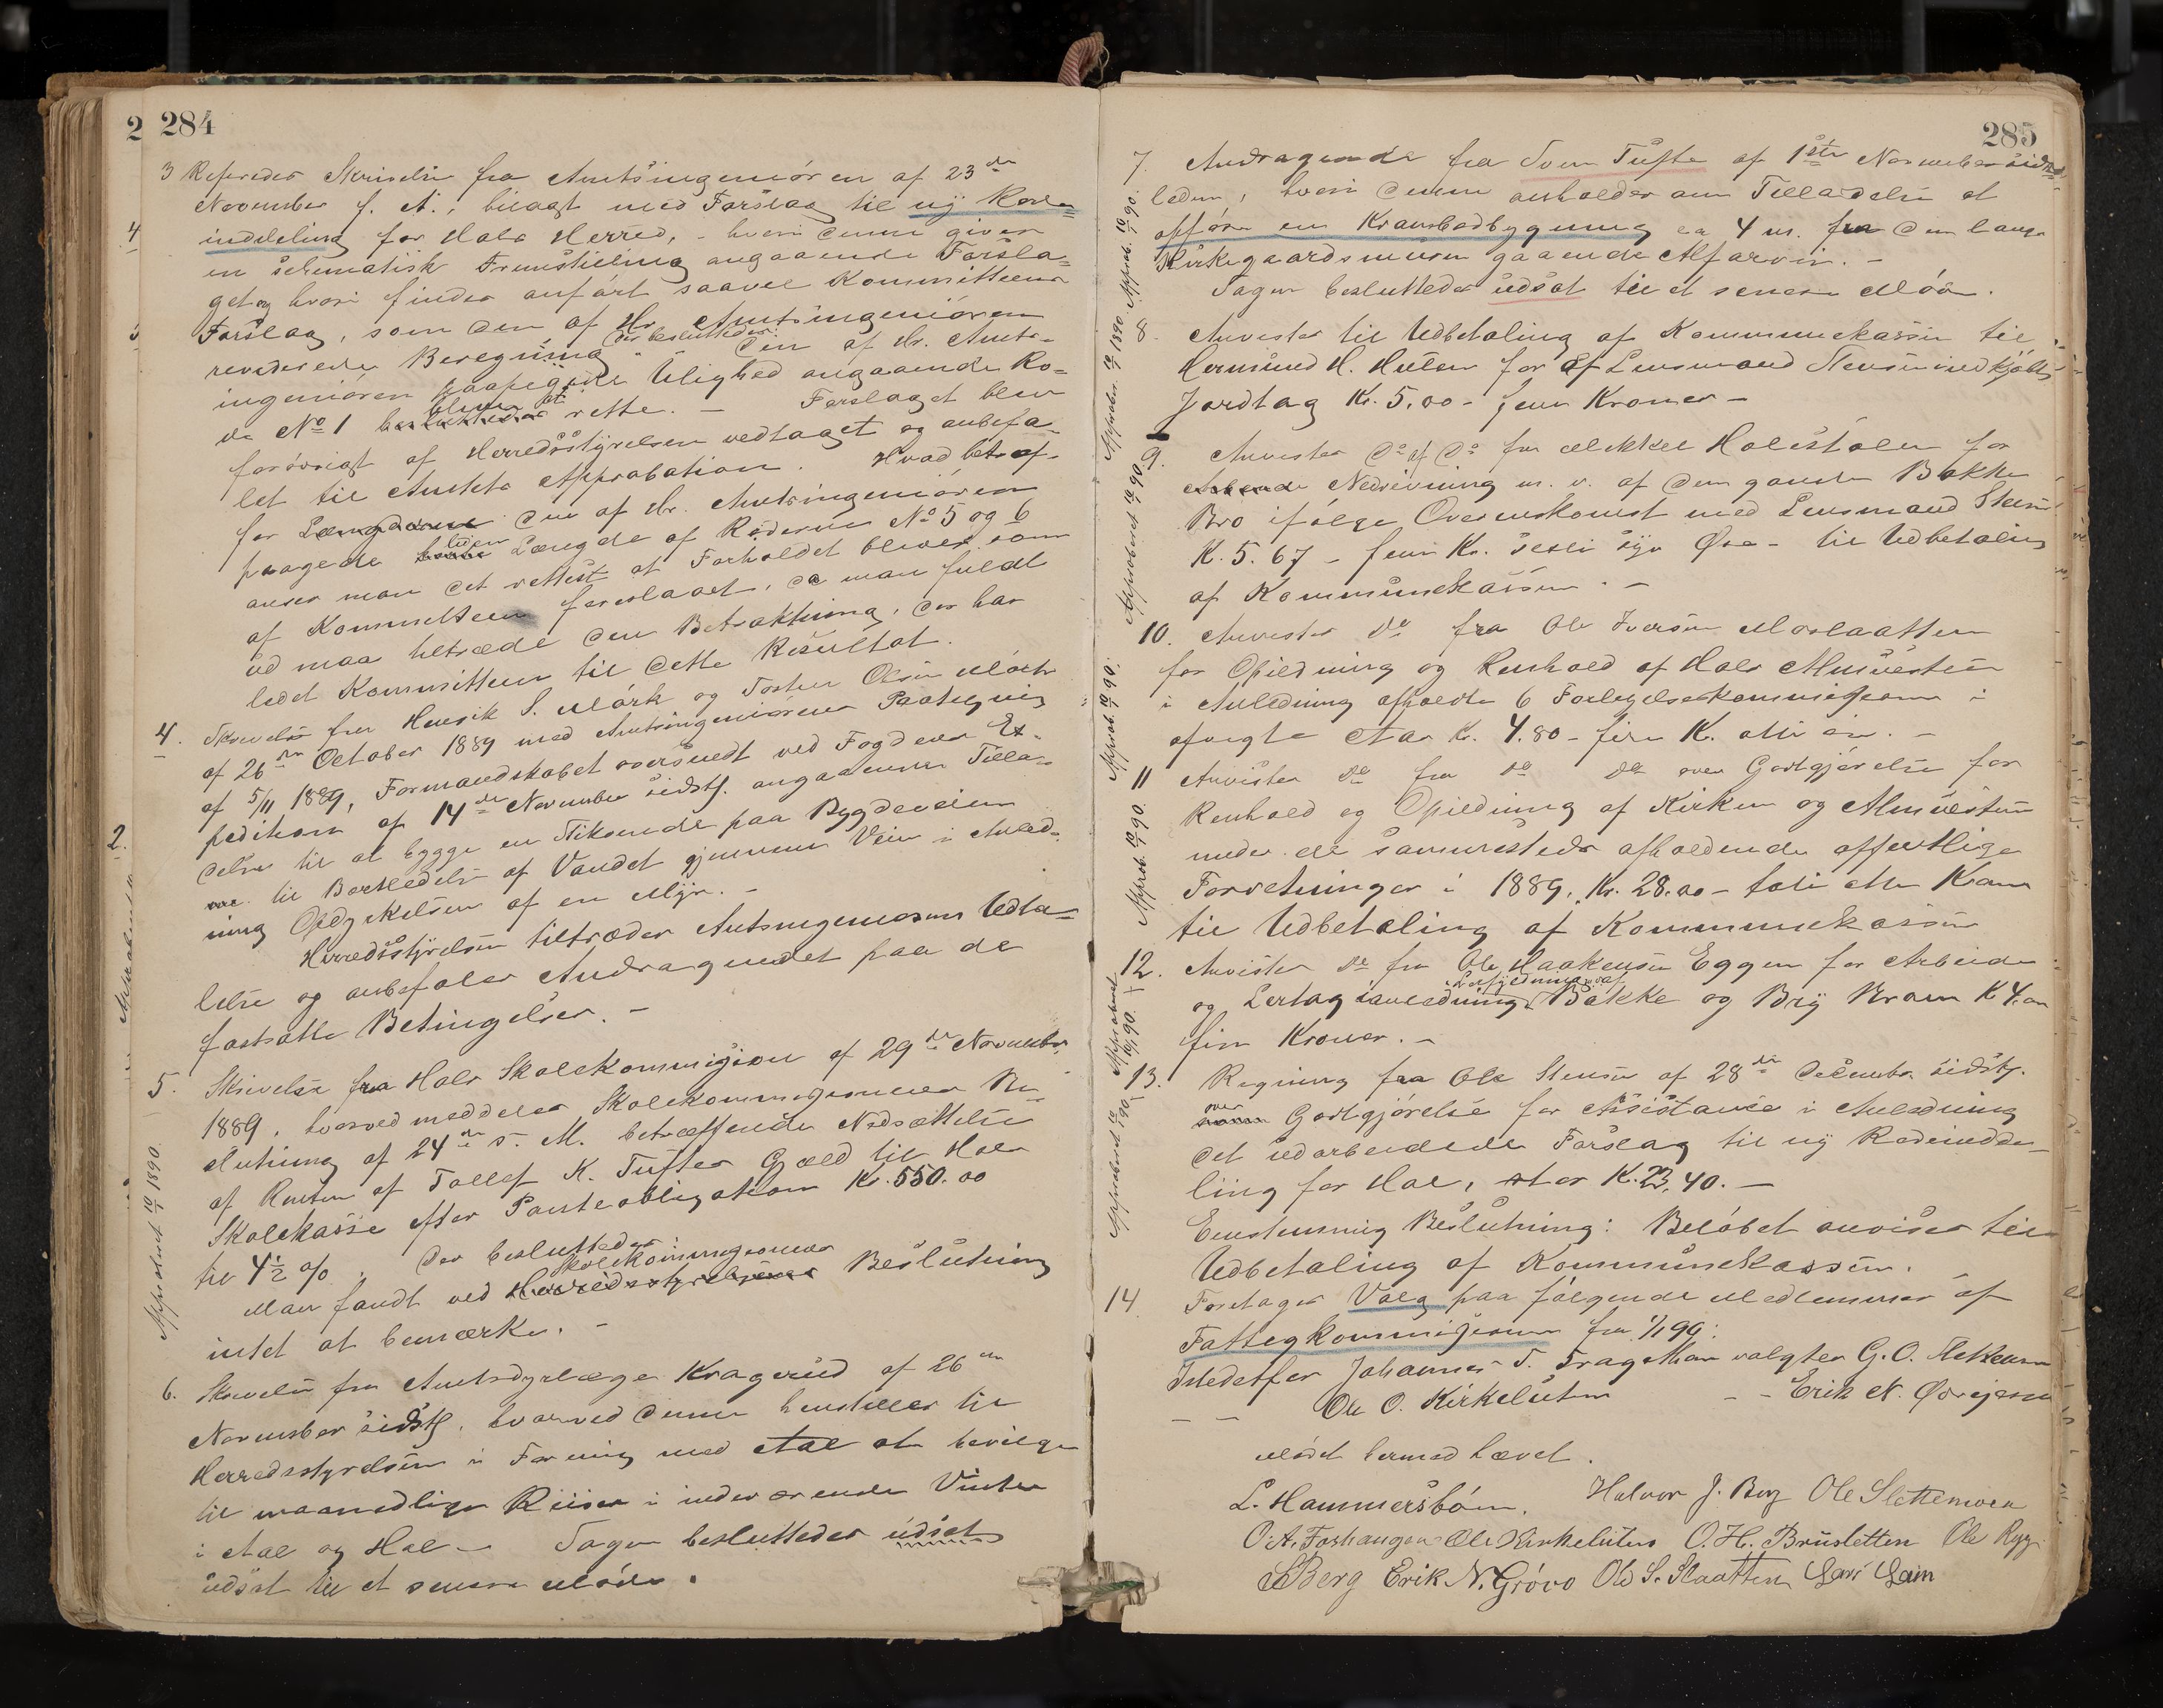 284
3 Refereder Skrivelse fra Amtsingeniøren af 23de
November f. A., bilagt med Forslag til ny Rode-
inddeling for Hols Herred, hvori denne giver
en schematisk Fremstilling angaaende Forsla-
get og hvori findes anført saavel Kommitteens
Forslag, som den af Hr. Amtsingeniøren
reviderede Beregning. Der besluttedes: Den af Hr. Amts-
ingeniøren paapegede Ulighed angaaende Ro-
de No 1 blev at rette. – Forslaget blev
forøvrigt af Herredsstyrelsen vedtaget og anbefa-
let til Amtets Approbation. Hvad betræf-
for Længderne den af Hr. Amtsingeniøren
paagede liden Længde af Roderne No 5 og 6
anser man det rettest at Forholdet bliver som
af Kommitteen foreslaaet, da man fuldt
ud maa tiltræde den Betraktning, der har
ledet Kommitteen til dette Resultat.
4. Skrivelse fra Henrik S. Mørk og Torsten Olsen
af 26de October 1889 med Amtsingeniørens Paategning
af 5/11 1889, Formandskabet oversendt ved Fogdens Ex-
pedition af 14de November sidstl. angaaende Tilla-
delse til at bygge en Stikrende paa Bygdeveien
til Bortledelse af Vandet gjennem Veien i Anled-
ning Opdyrkelsen af en Myr. –
Herredsstyrelsen tiltræder Amtsingeniørens Udta-
lelse og anbefaler Andragendet paa de
fastsatte Betingelser. –
5. Skrivelse fra Hols Skolekommission af 29de November
1889, hvorved meddeles Skolekommissionens Be-
slutning af 24de s. M. betræffende Nedsættelse
af Renten af Tollef K. Tuftes Gjæld til Hols
Skolekasse efter Panteobligation Kr. 550.00
til 4½ %. Der besluttedes:
Man fandt ved Skolekommissionens Herredsstyrelsens Beslutning
intet at bemærke. –
Approberet 10/1 1890.
6. Skrivelse fra Amtsdyrlæge Kragerud af 26de
November sidstl., hvorved denne henstiller til
Herredsstyrelsen i Forening med Aal at bevilge
til maanedlige Reiser i indeværende Vinter
i Aal og Hol – Sagen besluttedes udsat
udsat til et senere Møde.
285
7. Andragende fra Sven Tufte af 1ste November sidst-
leden, hvori denne anholder om Tilladelse at
opføre en Krambodbygning ca 4 m. fra den langs
Kirkegaardsmuren gaaende Alfarvei. –
Sagen besluttedes udsat til et senere Møde.
8. Anvistes til Udbetaling af Kommunekassen til
Hermund H. Hulen for af Lensmand Stensen indkjøbt
Jordtag Kr. 5.00 – fem Kroner –
9. Anvistes do af do fra Mekkel Holestølen for
Nedrivning m. v. af den gamle Bakke
Bro ifølge Overenskomst med Lensmand Stensen
K. 5.67 – fem Kr. sexti syv Øre – til Udbetaling
af Kommunekassen. –
10. Anvistes do fra Ole Iversen Moslaatten
for Opildning og Renhold af Hols Almuestue
i Anledning afholdte 6 Forligelseskommissioner i
afvigte Aar K. 4.80 – fire K. otti øre. –
11 Anvistes do fra do do over Godtgjørelse for
Renhold og Opildning af Kirken og Almuestuen
under de sammesteds afholdende offentlige
Forretninger i 1889, Kr. 28.00 – toti otte Kroner
til Udbetaling af Kommunekassen
12. Anvistes do fra Ole Haakensen Eggen for Arbeide
og Lertag i anledning Lerfyldning af Bakke og Bry Kroer K 4.00
fire Kroner. –
13. Regning fra Ole Stensen af 28de December sidstl.
over Godtgjørelse for Assistance i Anledning
det udarbeidede Forslag til ny Rodeindde-
ling for Hol, stor K. 23,40. –
Eenstemmig Beslutning: Beløbet anvises til
Udbetaling af Kommunekassen.
14 Foretages Valg paa følgende Medlemmer af
Fattigkommissionen fra 1/1 90:
Istedetfor Johannes T. Tragethon valgtes G. O.
– – Ole O. Kirkeluten – – Erik N.
Mødet hermed hævet.
L. Hammersbøen. Halvor J. Berg Ole Slettemoen
O. A. Forhaugen Ole Kirkeluten O. H. Brusletten Ole
SBerg Erik N. Grøvo Ole S. Slaatten
Approb. 10/1 90.
Approber. 10/1 1890.
Approberet 10/1 90.
Approb. 10/1 90.
Approb. 10/1 90.
Approberet 10/1 90.
Approberet 10/1 90.